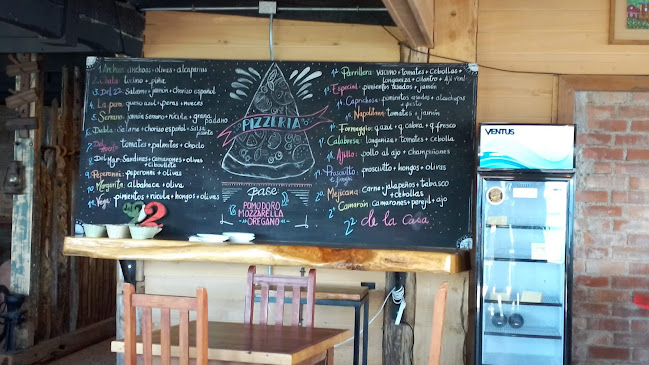 1. Anchoa: anchoas • olivas • alcaparras
2. Chola: tocino + piña
3. Del 22: Salame + jamón + chorizo español
4. La pera: queso azul + peras + nueces
5. Serrano: jamón serrano + rúcula + grana
padano
6. Diabla: Salame + chorizo español + salsa
picante
tomates + palmitos + choclo
Del Mar: Sardinas + camarones + olivas
+ ciboulette
Peperonni: peperonni + olivas
Margarita: albahaca + olivas
Vege: pimientos + rúcula + hongos + olivas
22
PIZZERIA
Base
POMODORO
MOZZARELLA
OREGANO
Parrillera: vacuno + tomates + cebollas +
longaniza + cilantro + ají verde
Especial: pimientos asados + jamón
Caprichosa: pimientos asados + alcachofas
+ pesto
Napolitana: tomates + jamón
Formaggio: q. azul + q. cabra + q. fresco
Calabresa: longaniza + tomates + cebolla
Ajillo: pollo al ajo + champiñones
Prosciutto
e funghi:
prosciutto + hongos + olivas
Mejicana: Carne + jalapeños + tabasco
+ cebollas
Camarón: camarones + perejil + ajo
22 de la Casa
VENTUS